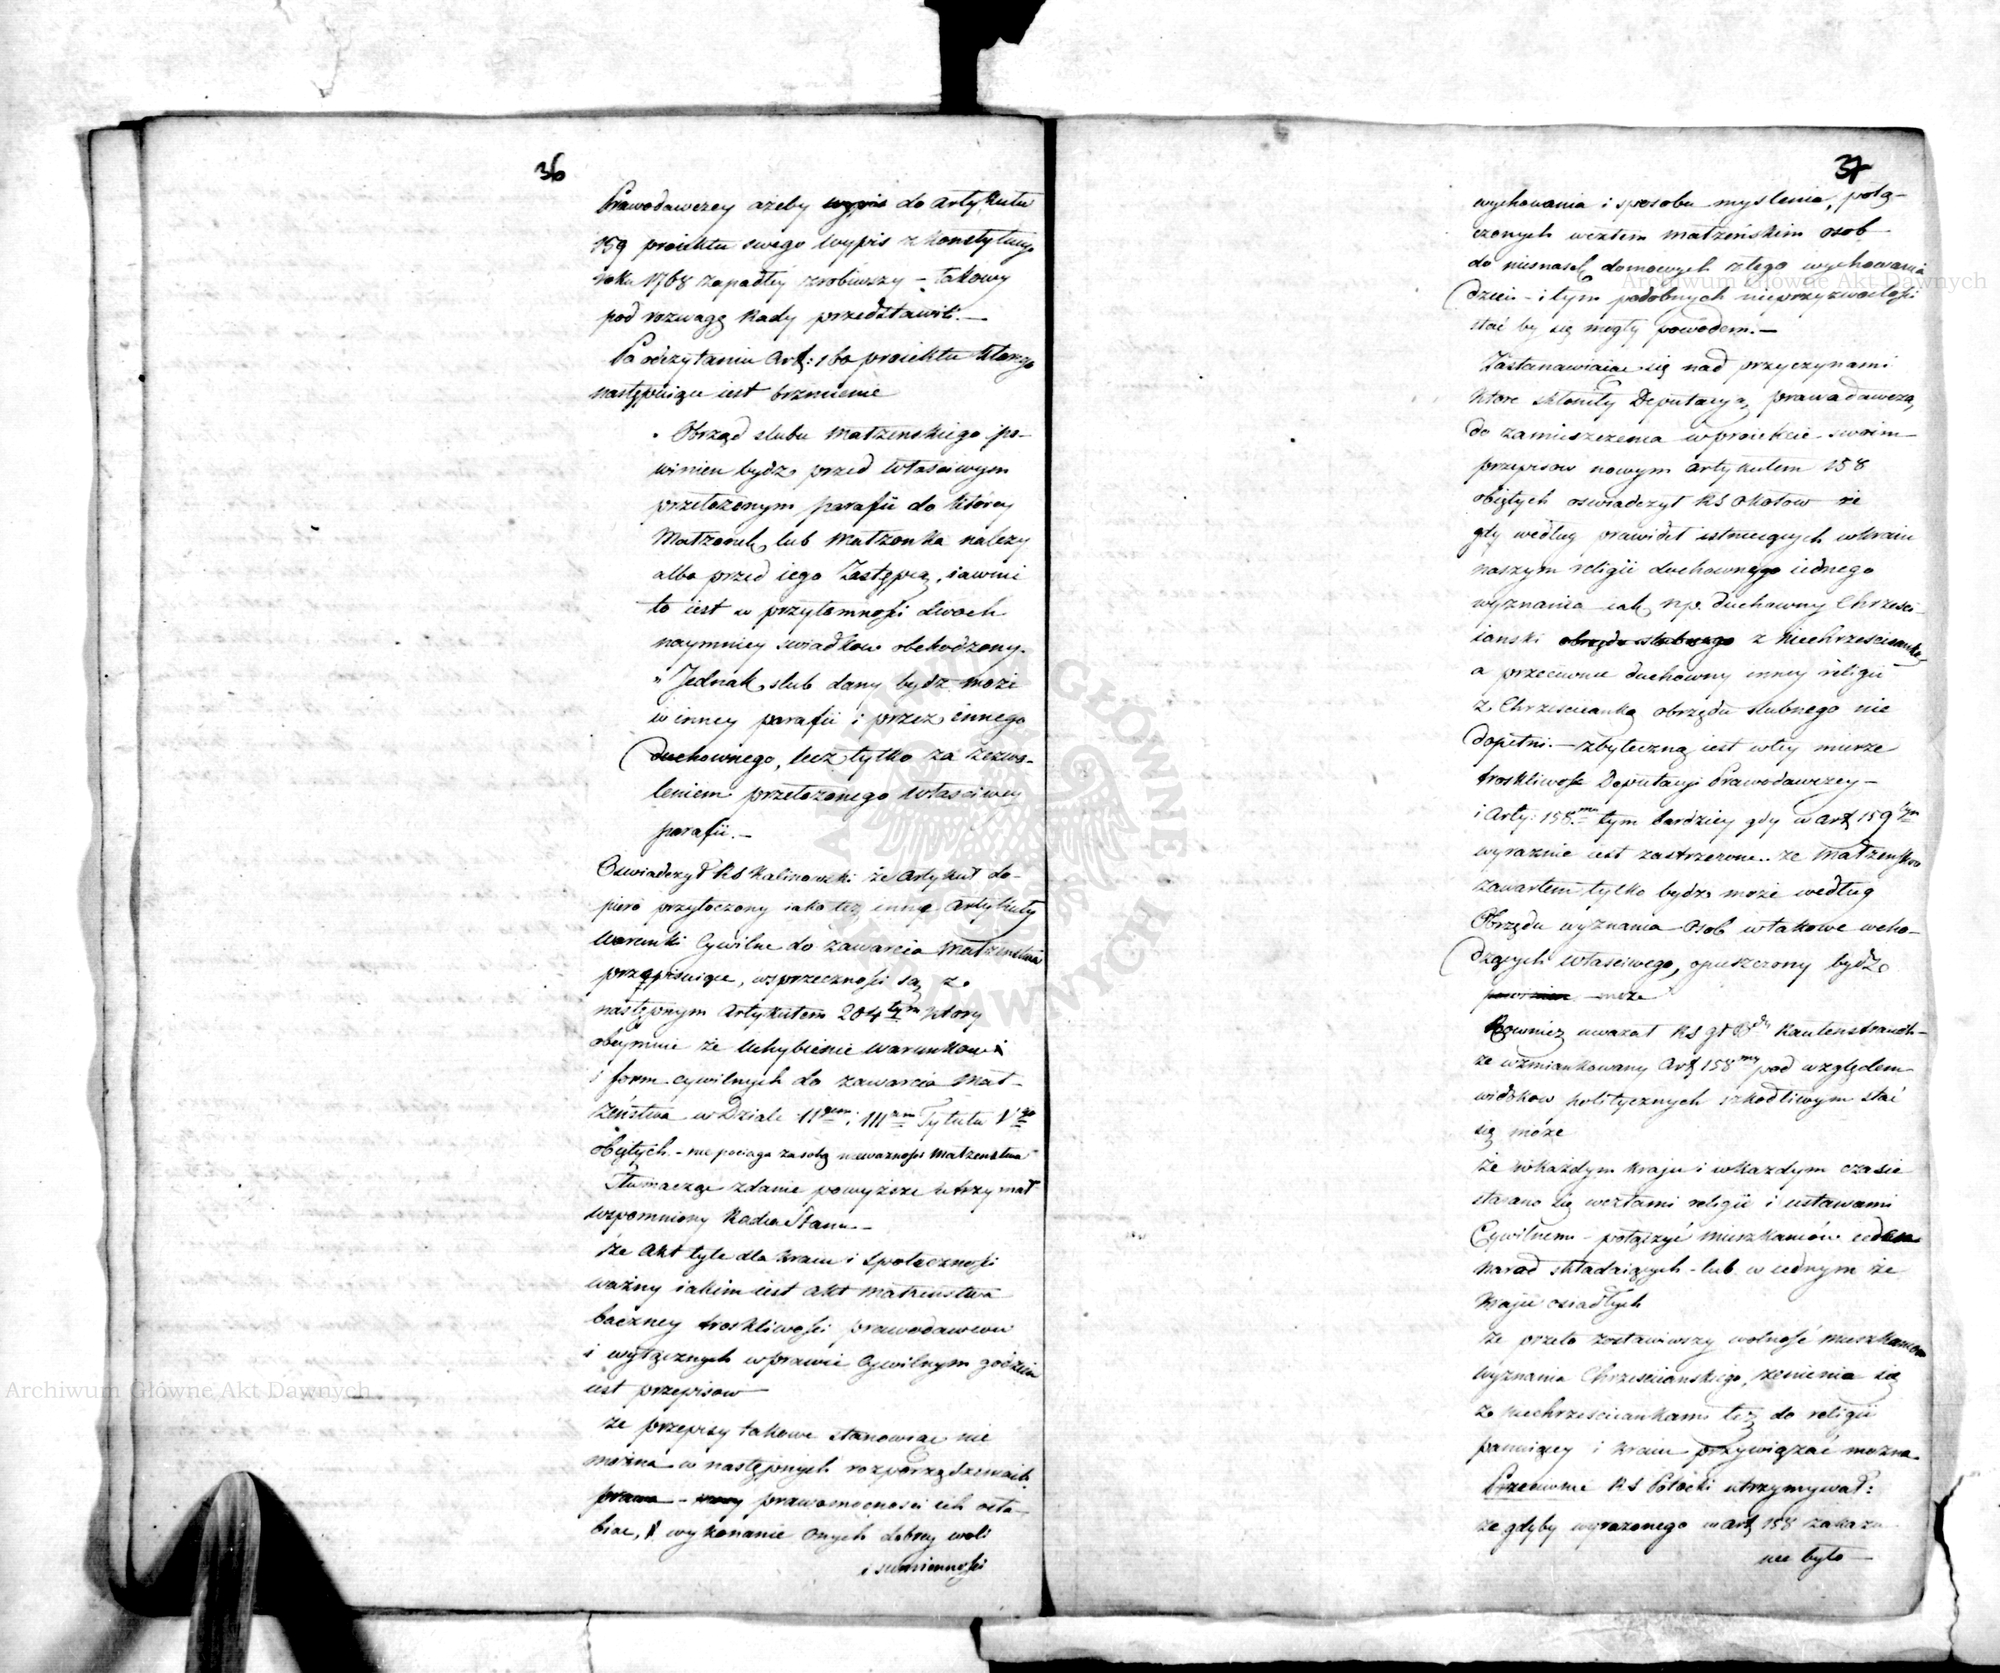 36
Prawodawczey ażeby wypis do artykułu
159 proiektu swego wypis z konstytucyi
roku 1768 zapadłey zrobiwszy – takowy
pod rozwagę Rady przedstawił. –
Po odczytaniu Art: 160 proiektu którego
następuiące iest brzmienie
„ Obrząd slubu Małżenskiego po-
winien bydz przed właściwym
przełożonym parafii do którey
Małzonek lub Małzonka nalezy
albo przed iego Zastępcą, iawnie
to iest w przytomnosci dwoch
naymniey swiadkow obchodzony.
„ Jednak slub dany bydz może
w inney parafii i przez innego
duchownego, lecz tylko za zezwo-
leniem przełożonego właściwey
parafii. –
Oswiadczył RS Kalinowski że Artykuł do-
piero przytoczony iako też inne Artykuły
warunki Cywilne do zawarcia Małzenstwa
przepisuiące, w sprzecznosci są z
następnym Artykułem 204tym ktory
obeymuie że Uchybienie warunkow
i form cywilnych do zawarcia Mał-
żeństwa w Dziale IIgim i IIIcim Tytułu Vgo
obiętych – nie pociąga za sobą niewaznosci Małzenstwa
Tłumacząc zdanie powyższe utrzymał
wspomniony Radca Stanu –
że Akt tyle dla kraiu i społecznosci
ważny iakim iest Akt Małżenstwa
baczney troskliwosci prawodawcow
i wyłącznych w prawie Cywilnym godzien
iest przepisow
ze przepisy takowe stanowiąc nie
można w następnych rozporządzeniach
prawa – mocy prawomocnosci ich osła-
biac, i wykonanie onych dobrey woli
i sumiennosci
37
wychowania i sposobu myslenia, połą-
czonych węzłem Małżeńskim osob
do niesnasek domowych złego wychowania
dzieci – i tym podobnych nieprzyzwoitosci
stać by się mogły powodem. –
Zastanawiaiąc się nad przyczynami
ktore skłoniły Deputacyą prawodawczą
do zamieszczenia w proiekcie swoim
przepisow nowym artykułem 158
obiętych oswiadczył RS Okołow że
gdy według prawideł istnieiących w kraiu
naszym religii duchownego iednego
wyznania iak np. duchowny Chrzesci-
ianski obrzędu slubnego z Niechrzescianką
a przeciwnie duchowny inney religii
z Chrzescianką obrzędu slubnego nie
dopełni. – zbyteczną iest w tey mierze
troskliwość Deputacyi Prawodawczey –
i Arty: 158.my tym bardziey gdy w Art 159tym
wyraznie iest zastrzezone.. ze Małzenstwo
zawartem tylko bydz może według
Obrzędu wyznania Osob w takowe wcho-
dzących właściwego, opuszczony bydz
powinien może
Rownież uważał RS Kautenstrauch –
ze wzmiankowany Art 158my pod względem
widokow politycznych szkodliwym stać
się może
Że w każdym kraju i w kazdym czasie
starano się węzłami religii i ustawami
Cywilnemi – połączyć mieszkańców ieden
narod składaiących – lub w iednym że
kraju osiadłych
że przeto zostawiwszy wolność mieszkancom
wyznania Chrzescianskiego, żenienia się
z Niechrzesciankami też do religii
panuiącey i kraiu przywiązać można
Przeciwnie RS Potocki utrzymywał:
że gdyby wyrażonego w Art 158 zakazu
nie było –
Archiwum Główne Akt Dawnych
Archiwum Główne Akt Dawnych
ARCHIWUM GŁÓWNE AKT DAWNYCH